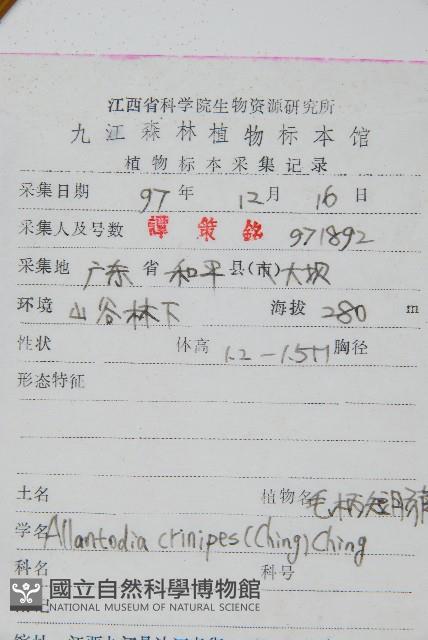 江西省科学院生物资源研究所
九江森林植物标本馆
植物标本采集记录
采集日期 97 年 12 月 16 日
采集人及号数 譚策銘 971892
采集地 广东 省 和平 县(市)大坝
环境 山谷林下 海拔 280 m
性状 体高 1.2-1.5m 胸径
形态特征
土名 植物名 毛柄短肠
学名 Allantodia crinipes (Ching) Ching
科名 科号
國立自然科學博物館
NATIONAL MUSEUM OF NATURAL SCIENCE